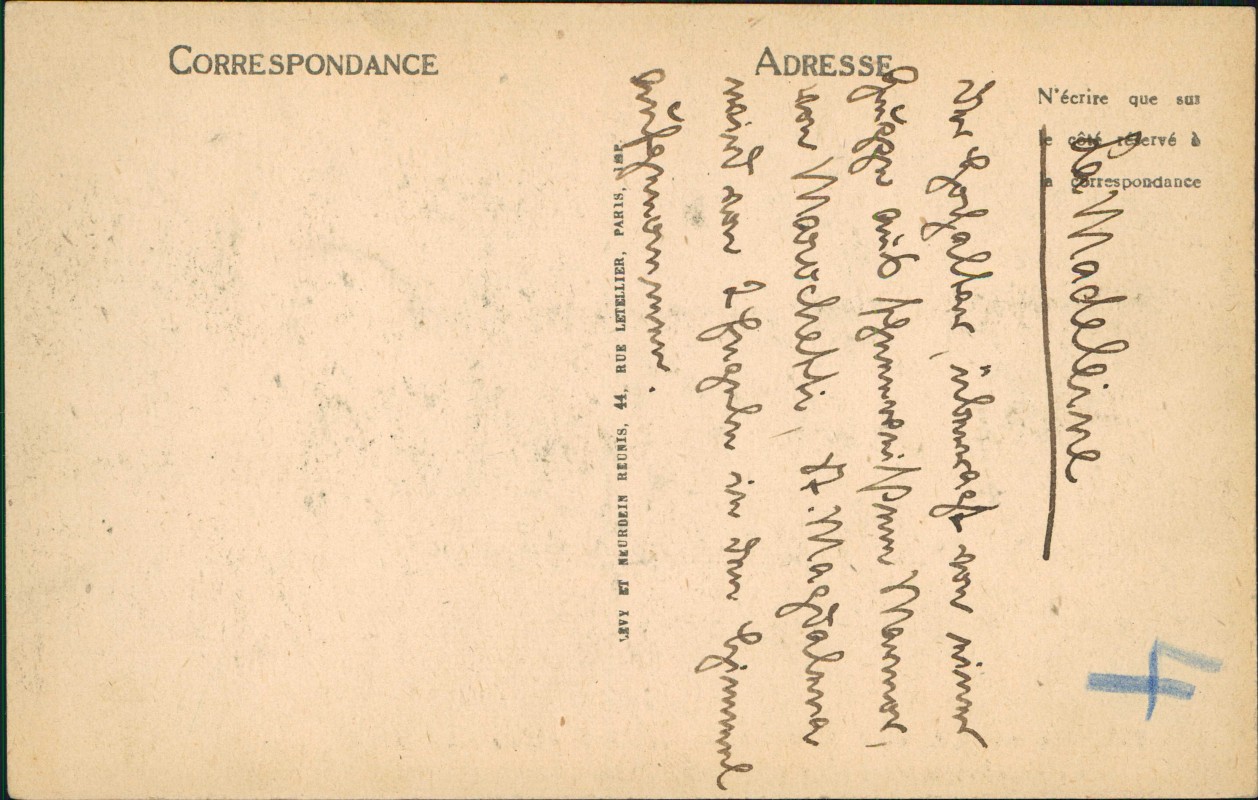 CORRESPONDANCE
ADRESSE
N'écrire que sur
le côté réservé à
la correspondance
La Madeleine
Der Hochaltar, überragt von einer
Gruppe aus schneeweißem Marmor,
von Marochetti, St. Magdalena
wird von 2 Engeln in den Himmel
aufgenommen.
LEVY ET NEURDEIN REUNIS, 44, RUE LETELLIER, PARIS, IMP.
4